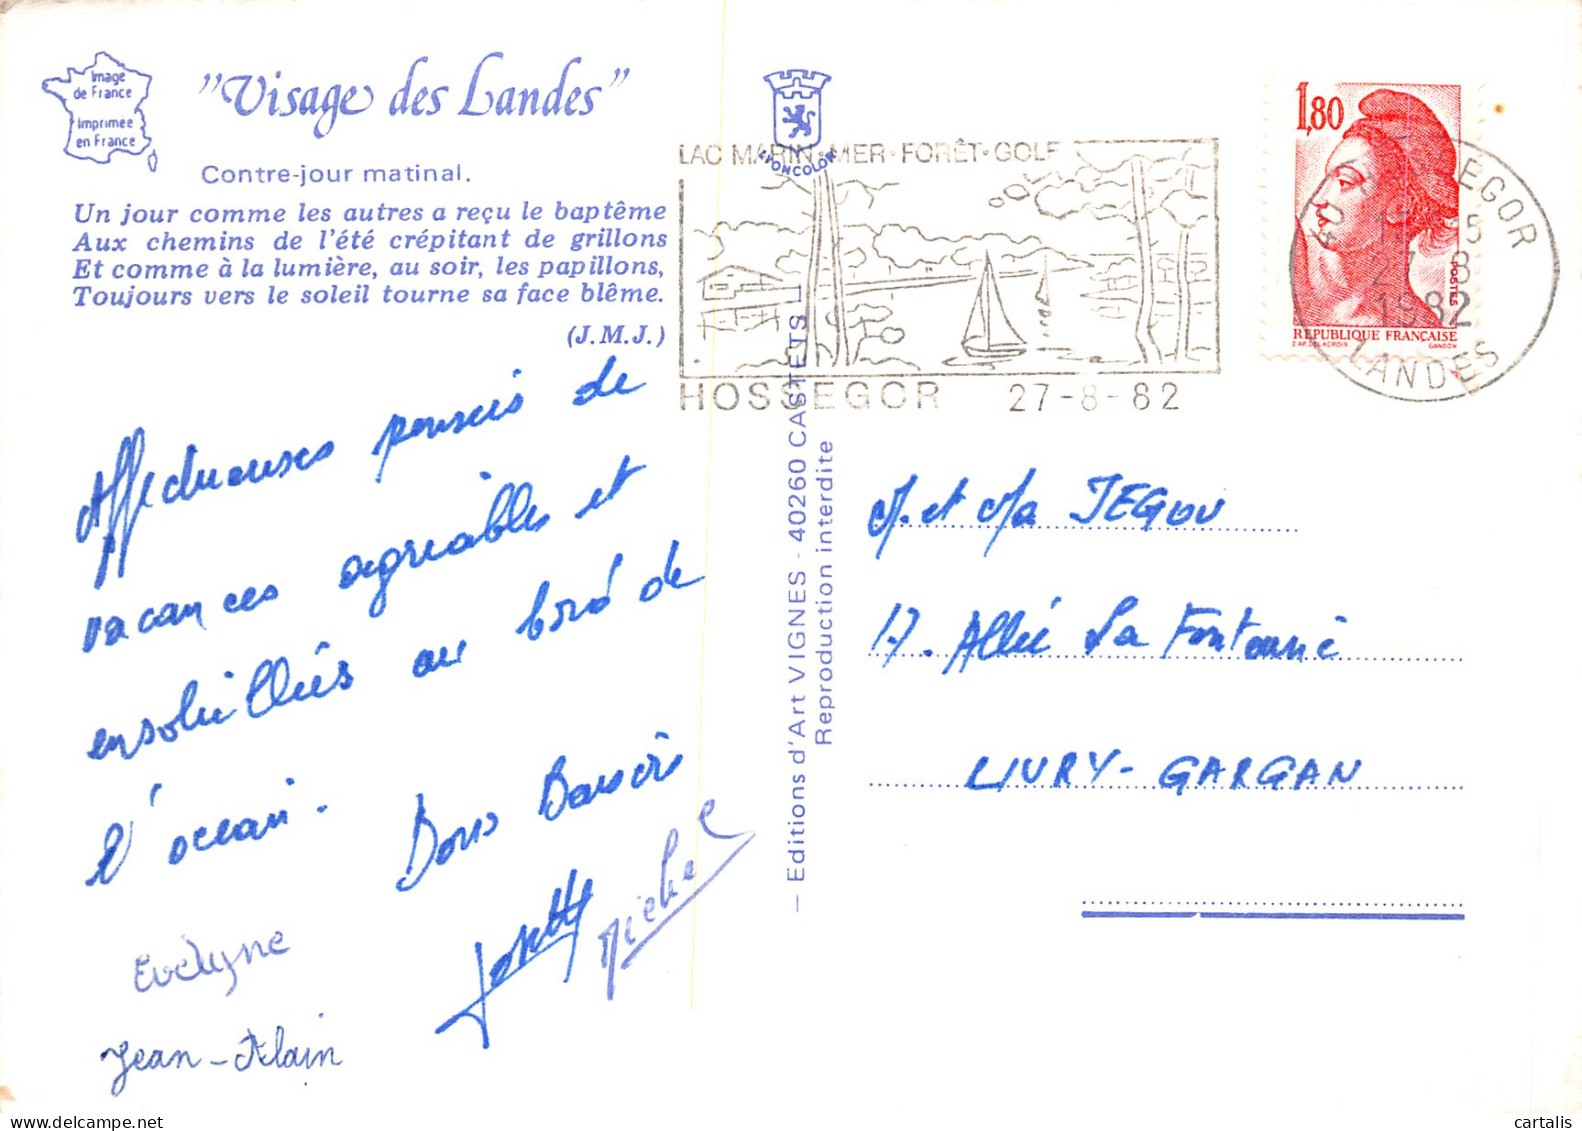 Image
de France
Imprimée
en France
"Visage des Landes"
Contre-jour matinal.
Un jour comme les autres a reçu le baptême
Aux chemins de l'été crépitant de grillons
Et comme à la lumière, au soir, les papillons,
Toujours vers le soleil tourne sa face blême.
(J.M.J.)
Affectueuses pensées de
vacances agréables et
ensoleillées au bord de
l'océan. Bons Baisers
Josette Michel
Evelyne
Jean-Alain
LYONCOLOR
LAC MARIN-MER-FORÊT-GOLF
HOSSEGOR 27-8-82
— Editions d'Art VIGNES - 40260 CASTETS —
Reproduction interdite
1,80
POSTES
REPUBLIQUE FRANÇAISE
D'AP. DELACROIX GANDON
EGOR
27-8
1982
LANDES
M. et Ma JEGOU
17. Allée La Fontaine
LIVRY-GARGAN
cartalis